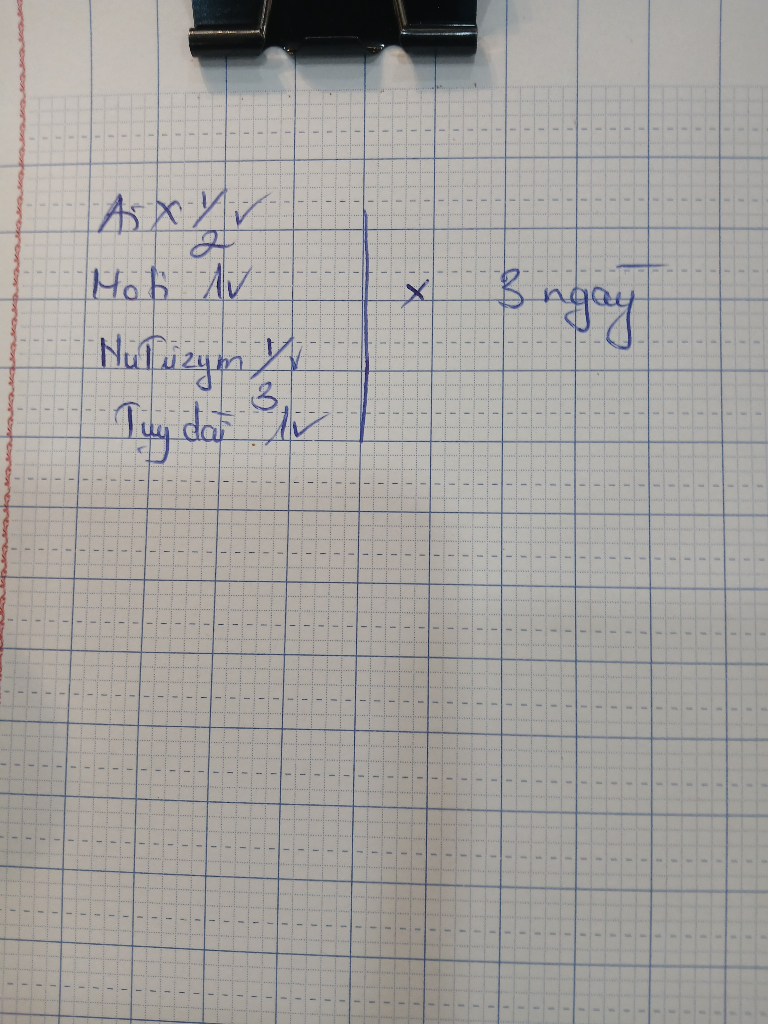 Ai X 1/2 v
Moti 1v
NuTrizym 1/3 v
Tụy dat 1v
x 3 ngay